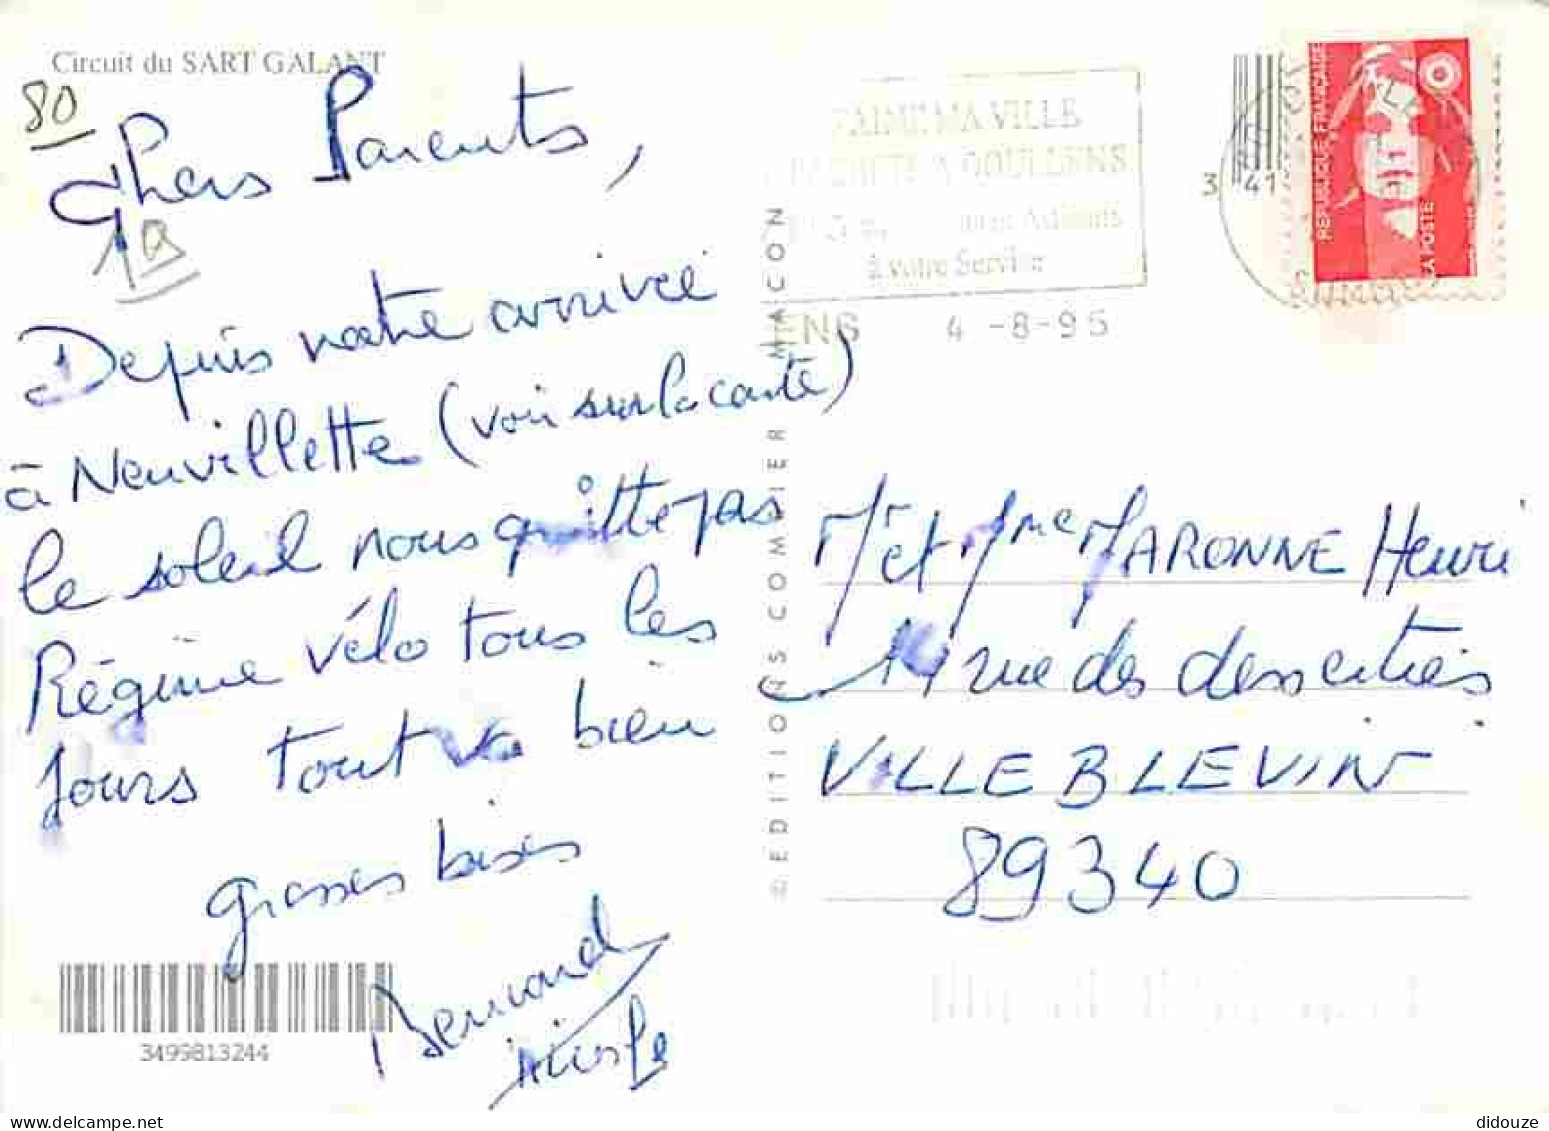 Circuit du SART GALANT
80
Chers Parents,
Depuis notre arrivée
à Neuvillette (voir sur la carte)
le soleil nous quitte pas
Régime vélo tous les
jours tout va bien
grosses bises
Bernard
Nicole
3499813244
© EDITIONS COMBIER MACON
J'AIME MA VILLE
J'ACHETE A DOULLENS
à votre Service
NS 4 -8-95
3 41
REPUBLIQUE FRANÇAISE
LA POSTE
Mr et Mme MARONNE Henri
14 rue des
VILLEBLEVIN
89340
didouze